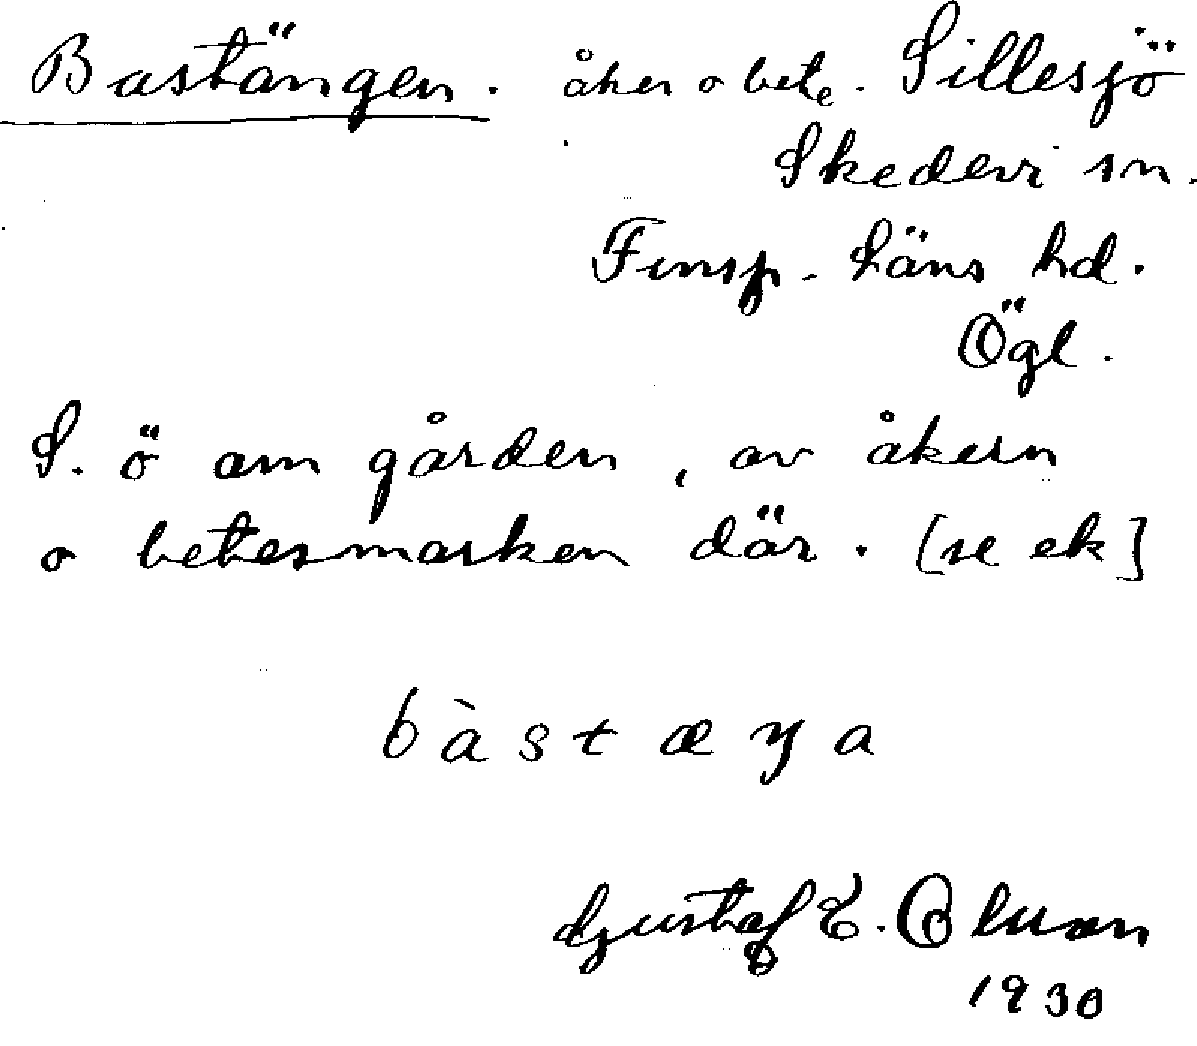 Bastängen. åker o bete. Sillesjö
Skedevi sn.
Finsp. läns hd.
Ögl.
S. ö om gården, av åkern
o betesmarken där. [se ek]
bàstæŋa
Gustaf E. Olsson
1930